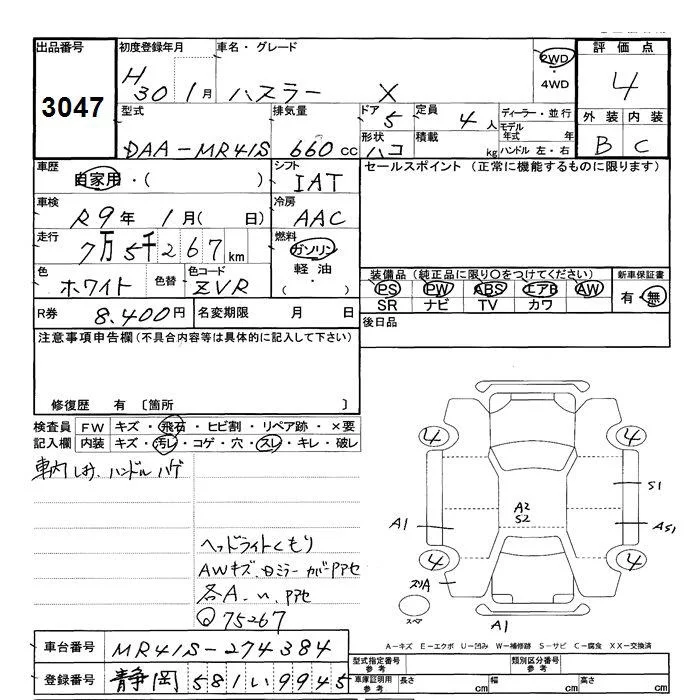 出品番号
3047
初度登録年月
H30年1月
車名・グレード
ハスラー X
2WD
・
4WD
評価点
4
外装 内装
B C
型式
DAA-MR41S
排気量
660cc
ドア
5
定員
4人
形状
ハコ
積載
kg
ディーラー・並行
モデル年式 年
ハンドル 左・右
車歴
自家用・( )
シフト
IAT
セールスポイント(正常に機能するものに限ります)
車検
R9年 1月( 日)
冷房
AAC
走行
7万5千267km
燃料
ガソリン
軽油
・( )
色
ホワイト
色替
色コード
ZVR
装備品(純正品に限り○をつけてください)
PS PW ABS エアB AW
SR ナビ TV カワ
新車保証書
有・無
R券 8.400円
名変期限 月 日
後日品
注意事項申告欄(不具合内容等は具体的に記入して下さい)
修復歴 有 〔箇所 〕
検査員記入欄
FW キズ・飛石・ヒビ割・リペア跡・×要
内装 キズ・汚レ・コゲ・穴・スレ・キレ・破レ
車内しお、ハンドルハゲ
ヘッドライトくもり
AWキズ、
各A
Q 75267
4 4
S1
A2
S2
A1
AS1
4 4
スリA
スペア
A1
A-キズ E-エクボ U-凹み W-補修跡 S-サビ C-腐食 XX-交換済
車台番号 MR41S-274384
登録番号 静岡 581い9945
型式指定番号
参考
類別区分番号
参考
車庫証明用
参考
長さ cm
幅 cm
高さ cm